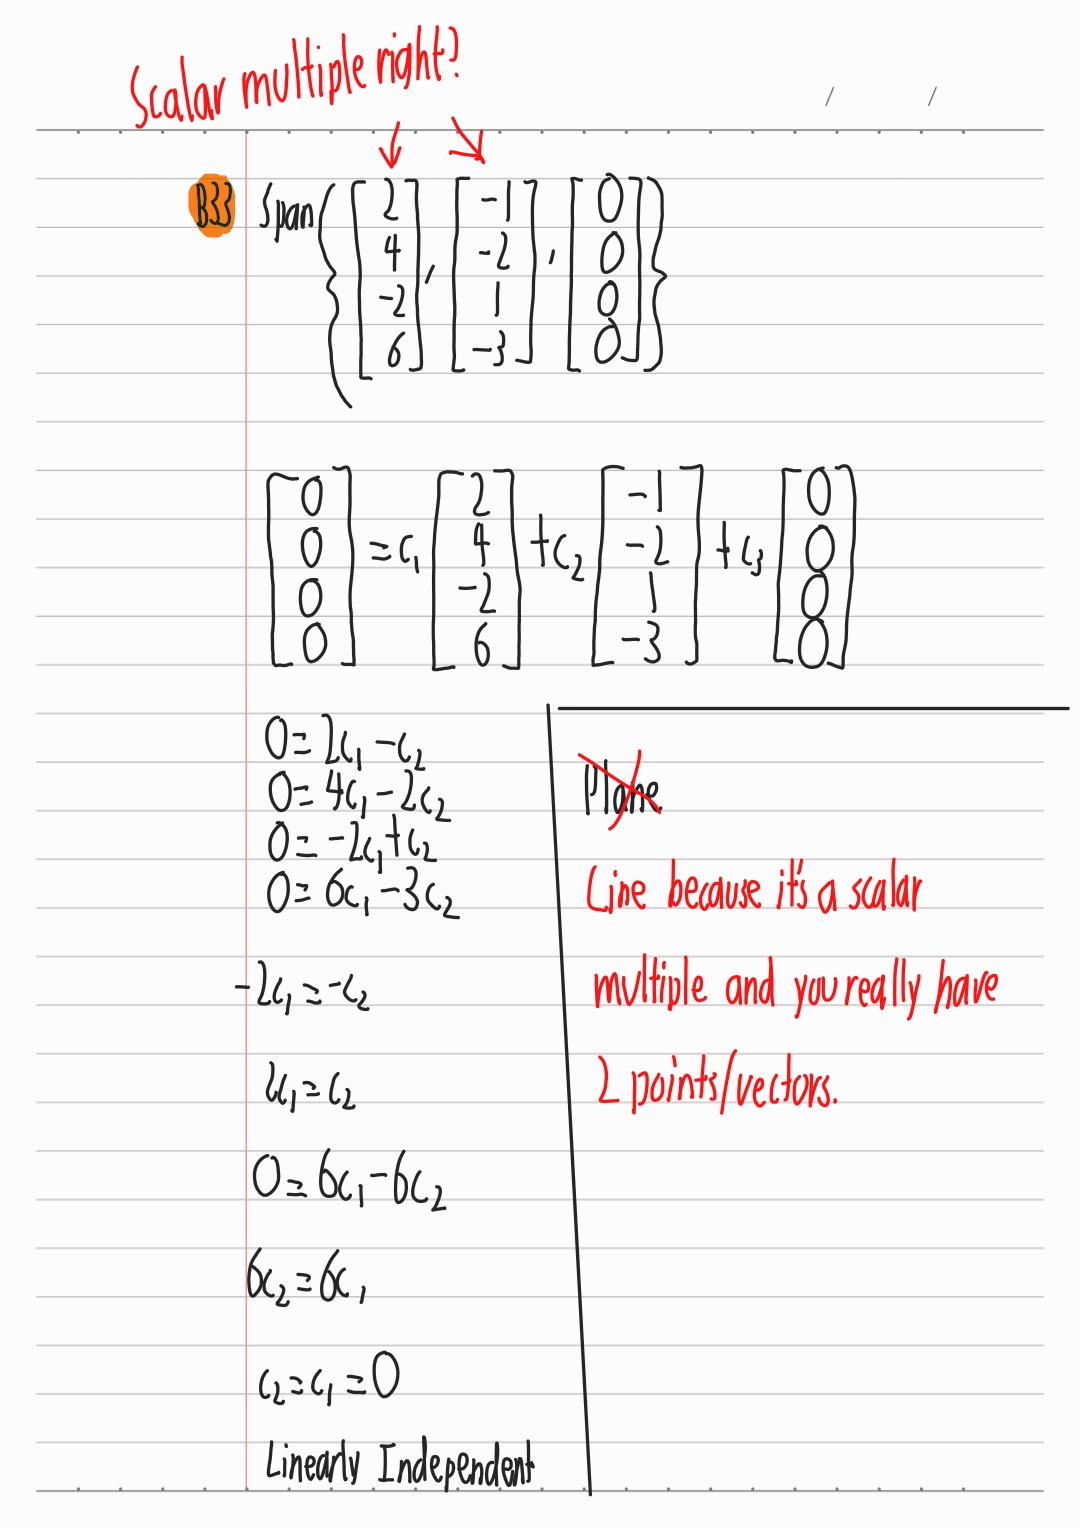 Scalar multiple right?
/ /
B33 Span{[2 4 -2 6], [-1 -2 1 -3], [0 0 0 0]}
[0 0 0 0] = c₁ [2 4 -2 6] + c₂ [-1 -2 1 -3] + c₃ [0 0 0 0]
0 = 2c₁ - c₂
0 = 4c₁ - 2c₂
0 = -2c₁ + c₂
0 = 6c₁ - 3c₂
-2c₁ = -c₂
2c₁ = c₂
0 = 6c₁ - 6c₂
6c₂ = 6c₁
c₂ = c₁ = 0
Linearly Independent
Plane
Line because it's a scalar
multiple and you really have
2 points/vectors.